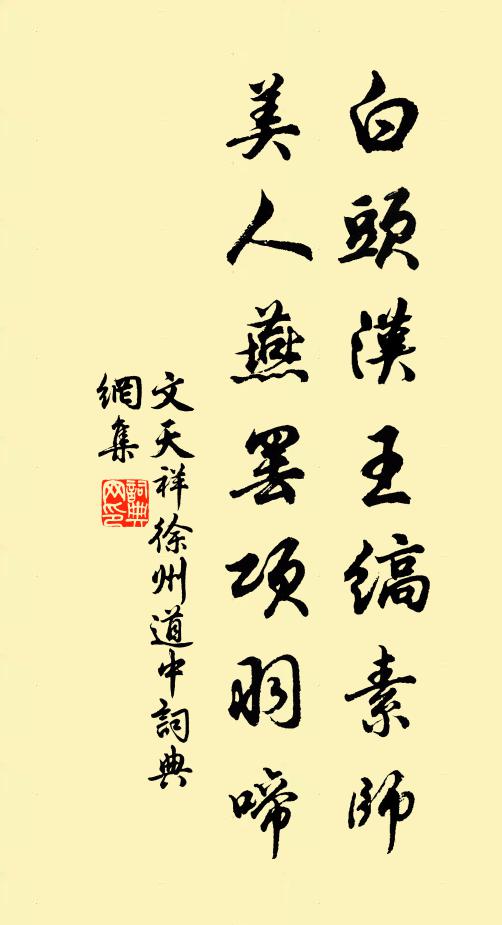 白頭漢王縞素師
美人燕罢項羽啼
文天祥徐州道中詞典
網集
詞典
网印